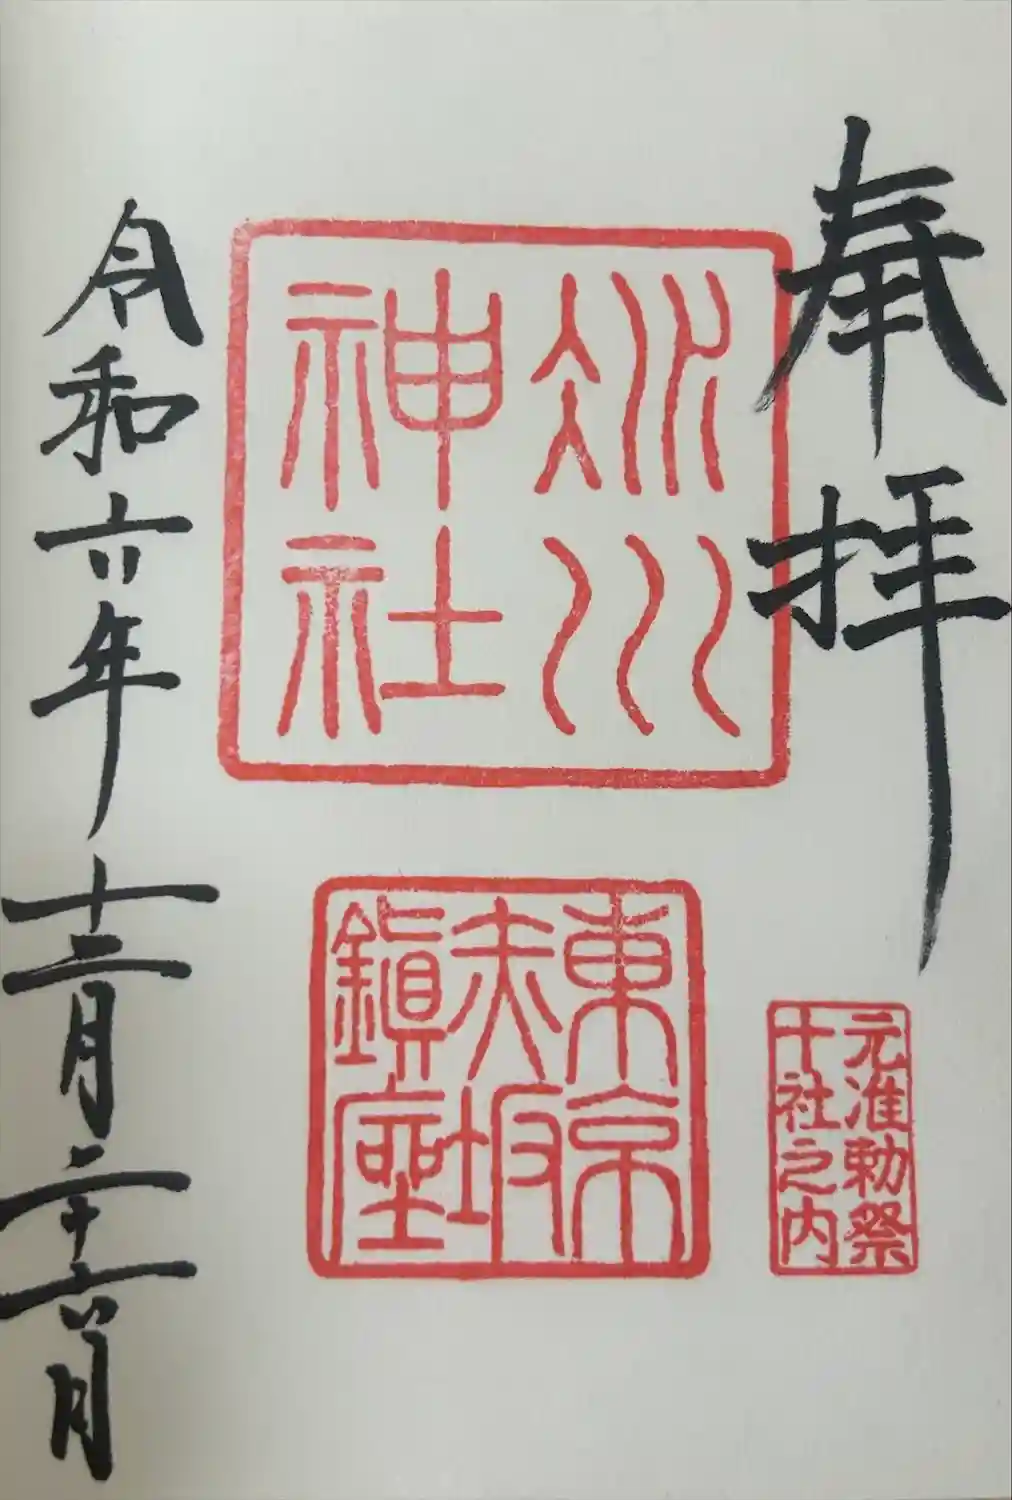 奉拝
冰川
神社
元准勅祭
十社之内
東京
赤坂
鎭座
令和六年十二月二十六日